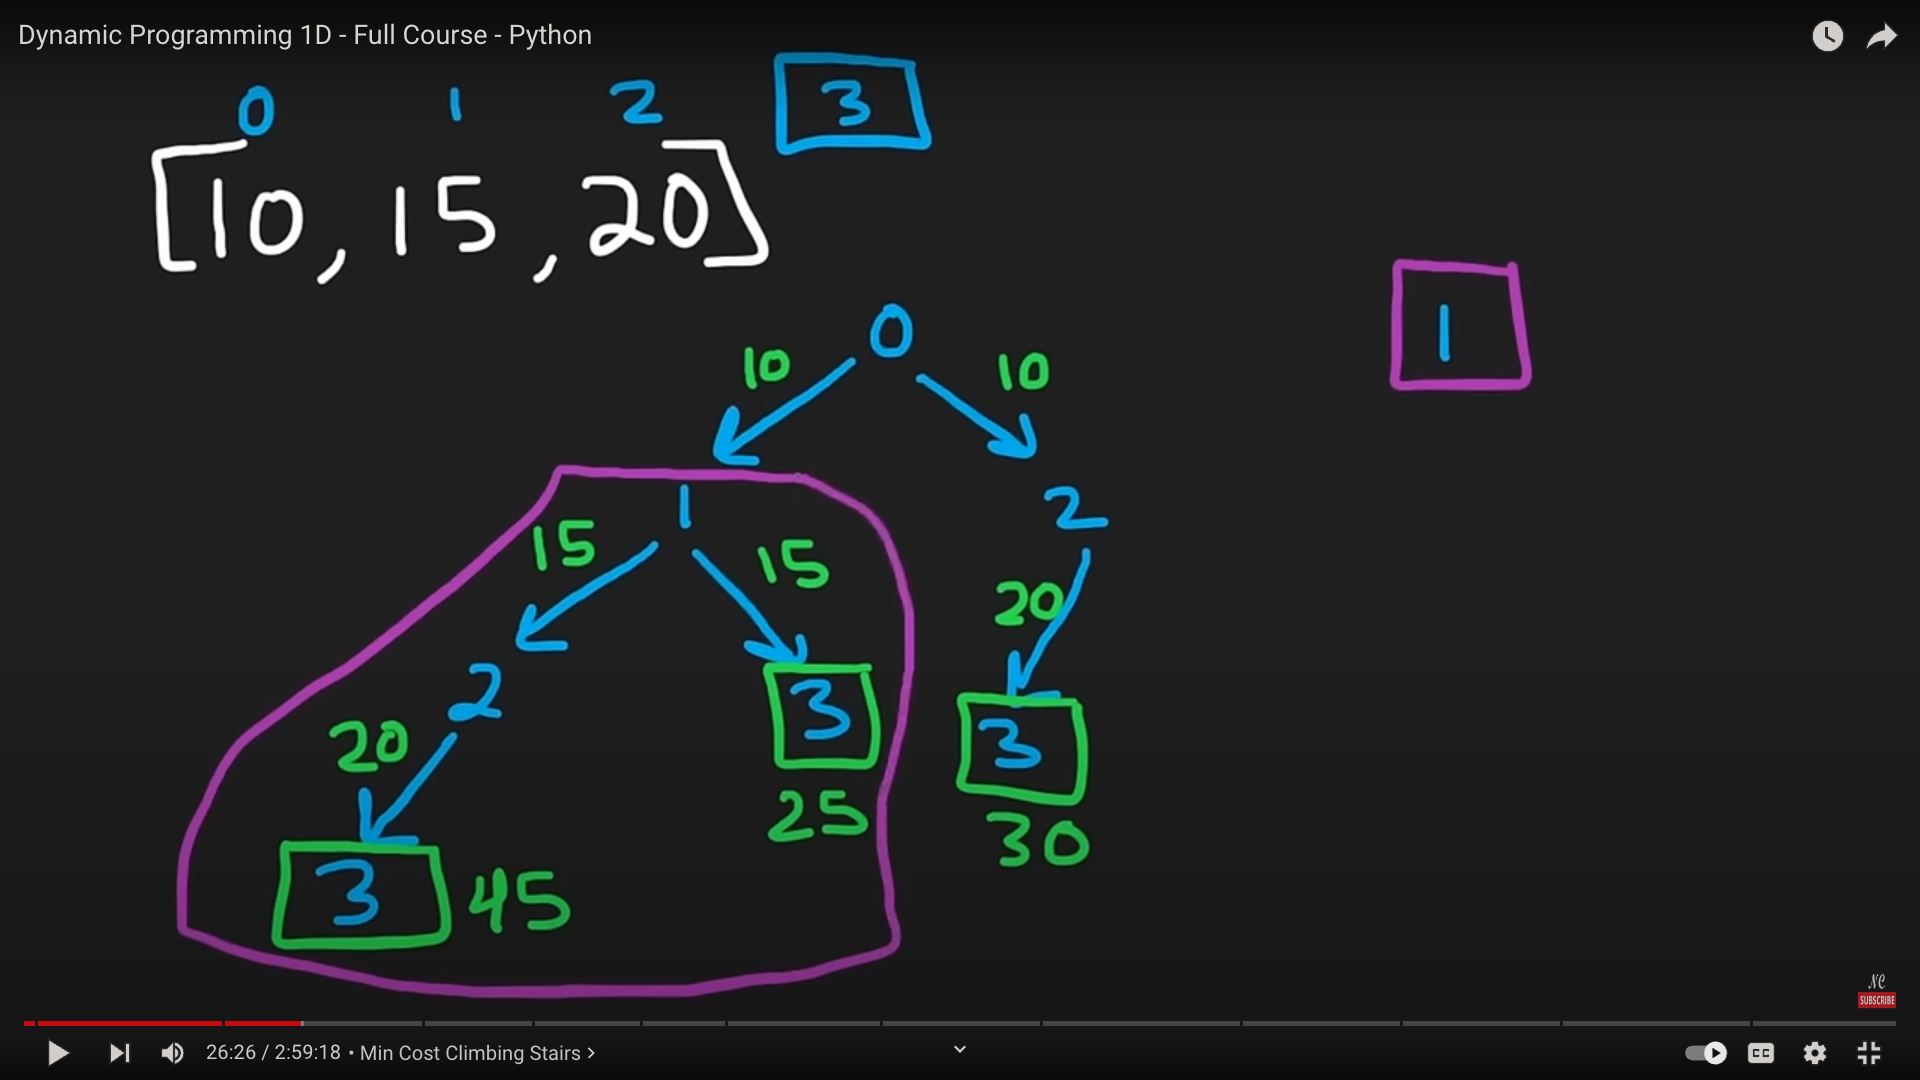 Dynamic Programming 1D - Full Course - Python
0 1 2 3
[10, 15, 20]
0
1
10 10
1 2
15 15
20
2 3 3
20
25 30
3 45
NC
SUBSCRIBE
26:26 / 2:59:18 • Min Cost Climbing Stairs >
CC